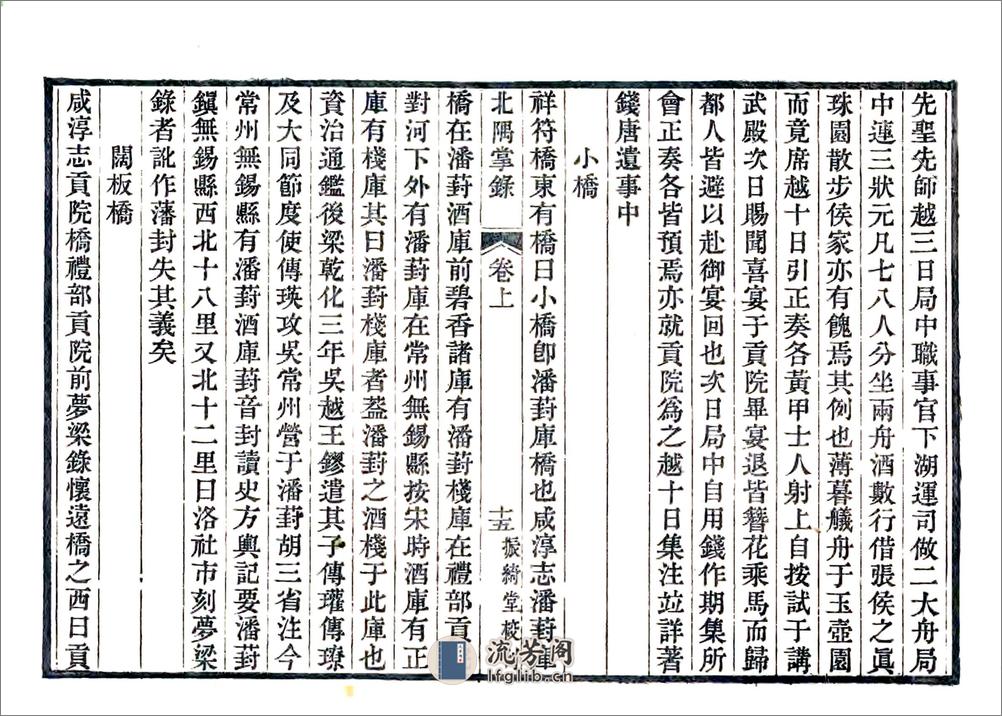 先聖先師越三日局中職事官下湖運司做二大舟局
中連三狀元凡七八人分坐兩舟酒數行借張侯之眞
珠園散步侯家亦有餽焉其例也薄暮艤舟于玉壺園
而竟席越十日引正奏各黃甲士人射上自按試于講
武殿次日賜聞喜宴于貢院畢宴退皆簪花乘馬而歸
都人皆避以赴御宴回也次日局中自用錢作期集所
會正奏各皆預焉亦就貢院爲之越十日集注竝詳著
錢唐遺事中
小橋
祥符橋東有橋曰小橋卽潘葑庫橋也咸淳志潘葑庫
北隅掌錄
卷上
十五
振綺堂校
橋在潘葑酒庫前碧香諸庫有潘葑棧庫在禮部貢
對河下外有潘葑庫在常州無錫縣按宋時酒庫有正
庫有棧庫其曰潘葑棧庫者葢潘葑之酒棧于此庫也
資治通鑑後梁乾化三年吳越王鏐遣其子傳瓘傳璙
及大同節度使傳瑛攻吳常州營于潘葑胡三省注今
常州無錫縣有潘葑酒庫葑音封讀史方輿記要潘葑
鎭無錫縣西北十八里又北十二里曰洛社市刻夢梁
錄者訛作藩封失其義矣
闊板橋
咸淳志貢院橋禮部貢院前夢梁錄懷遠橋之西曰貢
流芳阁
lfglib.cn